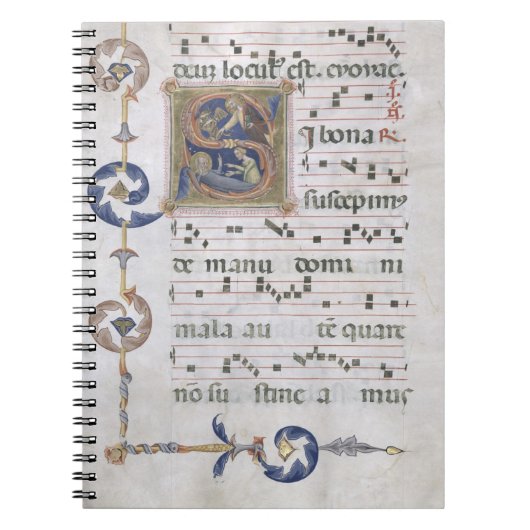 deuz locut᷒ est. evovae.
Si bona R.
suscepim᷒
de manu domi ni
mala au tē quare
nō su stine a mus